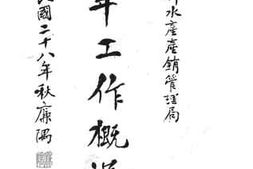 水產產銷管理局
年工作概
國二十八年秋廉隅